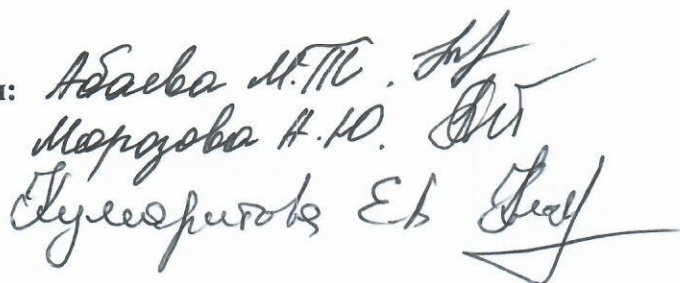 Абаева М.Т.
Морозова Н.Ю.
Кумаритова Е.В